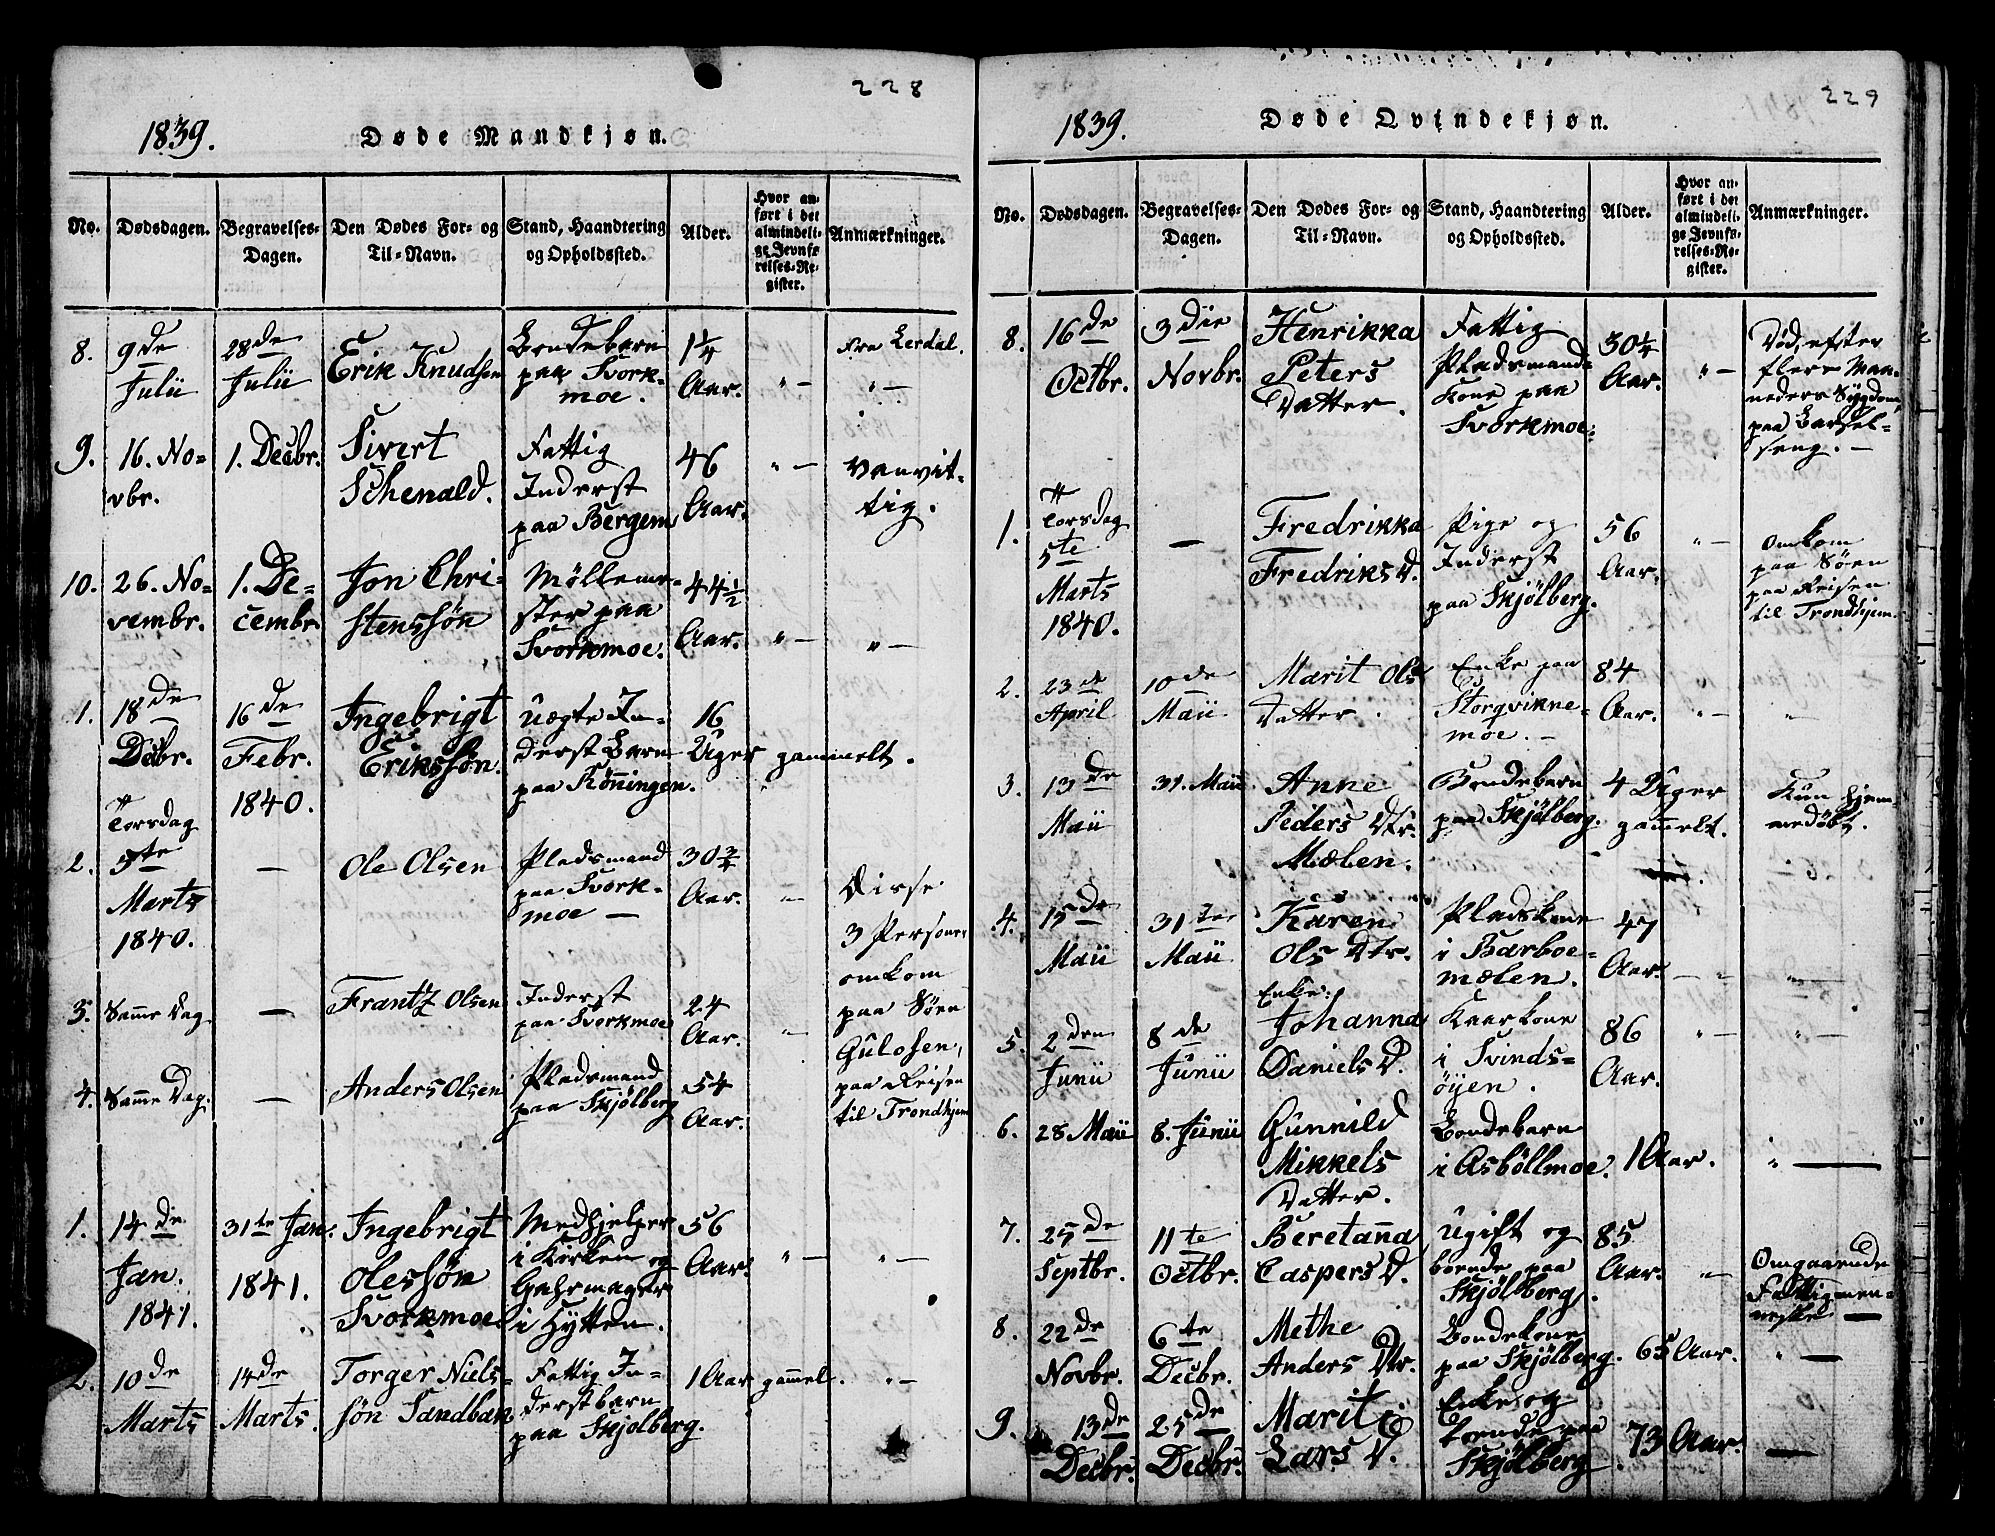 228
1839.
Døde Mandkjøn.
No.
Dødsdagen.
Begravelses-
Dagen.
Den Dødes For- og
Til-Navn.
Stand, Haandtering
og Opholdssted.
Alder.
Hvor an-
ført i det
almindeli-
ge Jevnfø-
relses-Re-
gister.
Anmærkninger.
8.
9de
Julii
28de
Julii
Erik Knudsen
Bondebarn
paa Svork-
moe.
1¼
Aar.
" —
Fra Lerdal.
" —
9.
16. No-
vbr.
1. Decbr.
Sivert
Schenald.
Fattig
Inderst
paa Bergem
46
Aar.
" —
vanvit-
tig.
10.
26. No-
vembr.
1. De-
cembr.
Jon Chri-
stenssön
Mölleme-
ster paa
Svorkmoe.
44½
Aar.
" —
" —
1.
18de
Decbr.
16de
Febr.
1840.
Ingebrigt
Erikssön.
uægte In-
derst Barn
paa Rönningen.
16
Uger gammelt.
2.
Torsdag
5te
Marts
1840.
—
Ole Olsen
Pladsmand
paa Svork-
moe —
30¾
Aar.
" —
Disse
3 Personer
omkom
paa Söen
Gulosen,
paa Reisen
til Trondhjem
3.
Samme Dag
—
Frantz Olsen
Inderst
paa Svorkmoe
24
Aar.
" —
4.
Samme Dag.
—
Anders Olsen
Pladsmand
paa Skjölberg
54
Aar.
1.
14de
Jan.
1841.
31te Jan.
1841.
Ingebrigt
Olessön
Svorkmoe
Medhjelper
i Kirken og
Gahrmager
i Hytten.
56
Aar.
" —
" —
2.
10de
Marts
14de
Marts
Torger Niels-
sön Sandbak
Fattig In-
derstbarn
paa Skjölberg.
1 Aar gammel.
" —
229
1839.
Døde Qvindekjøn.
No.
Dødsdagen.
Begravelses-
Dagen.
Den Dødes For- og
Til-Navn.
Stand, Haandtering
og Opholdssted.
Alder.
Hvor an-
ført i det
almindeli-
ge Jevnfø-
relses-Re-
gister.
Anmærkninger.
8.
16de
Octbr.
3die
Novbr.
Henrikka
Peters
Datter.
Fattig
Pladsmands
Kone paa
Svorkmoe.
30¼
Aar.
" —
Död, efter
flere Maa-
neders Sygdom,
paa Barsel-
seng. —
1.
Torsdag
5te
Marts
1840.
—
Fredrikka
Fredriks D.
Pige og
Inderst
paa Skjölberg.
56
Aar.
" —
omkom
paa Söen
paa Reisen
til Trondhjem.
2.
23de
April
10de
Maii
Marit Ols
Datter.
Enke paa
Storqvikne-
moe. —
84
Aar.
" —
" —
3.
13de
Maii
31. Maii
Anne
Peders Dtr.
Mælen.
Bondebarn
paa Skjölberg.
4 Uger
gammelt.
Kun hjem-
medöbt.
4.
15de
Maii
31te
Maii
Karen
Ols Dtr.
Pladskone
i Barboe-
mælen.
47
Aar.
— "
" —
5.
2den
Junii
8de
Junii
Enke:
Johanna
Daniels D.
Kaarkone
i Svinds-
öyen.
86
Aar.
" —
" —
6.
28 Maii
8. Junii
Gunnild
Mikkels
Datter.
Bondebarn
i Asböllmoe.
1 Aar.
" —
7.
25de
Septbr.
11te
Octbr.
Beretanna
Caspers D.
ugift og
boende paa
Skjölberg.
85
Aar.
" —
Omgaaende
Fattigmen-
neske —
8.
22de
Novbr.
6te
Decbr.
Methe
Anders Dtr.
Bondekone
paa Skjölberg.
65 Aar.
" —
9.
13de
Decbr.
25de
Decbr.
Marit
Lars D.
Enke og
boende paa
Skjölberg.
73 Aar.
—